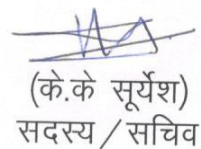 (के.के सूर्येश)
सदस्य / सचिव